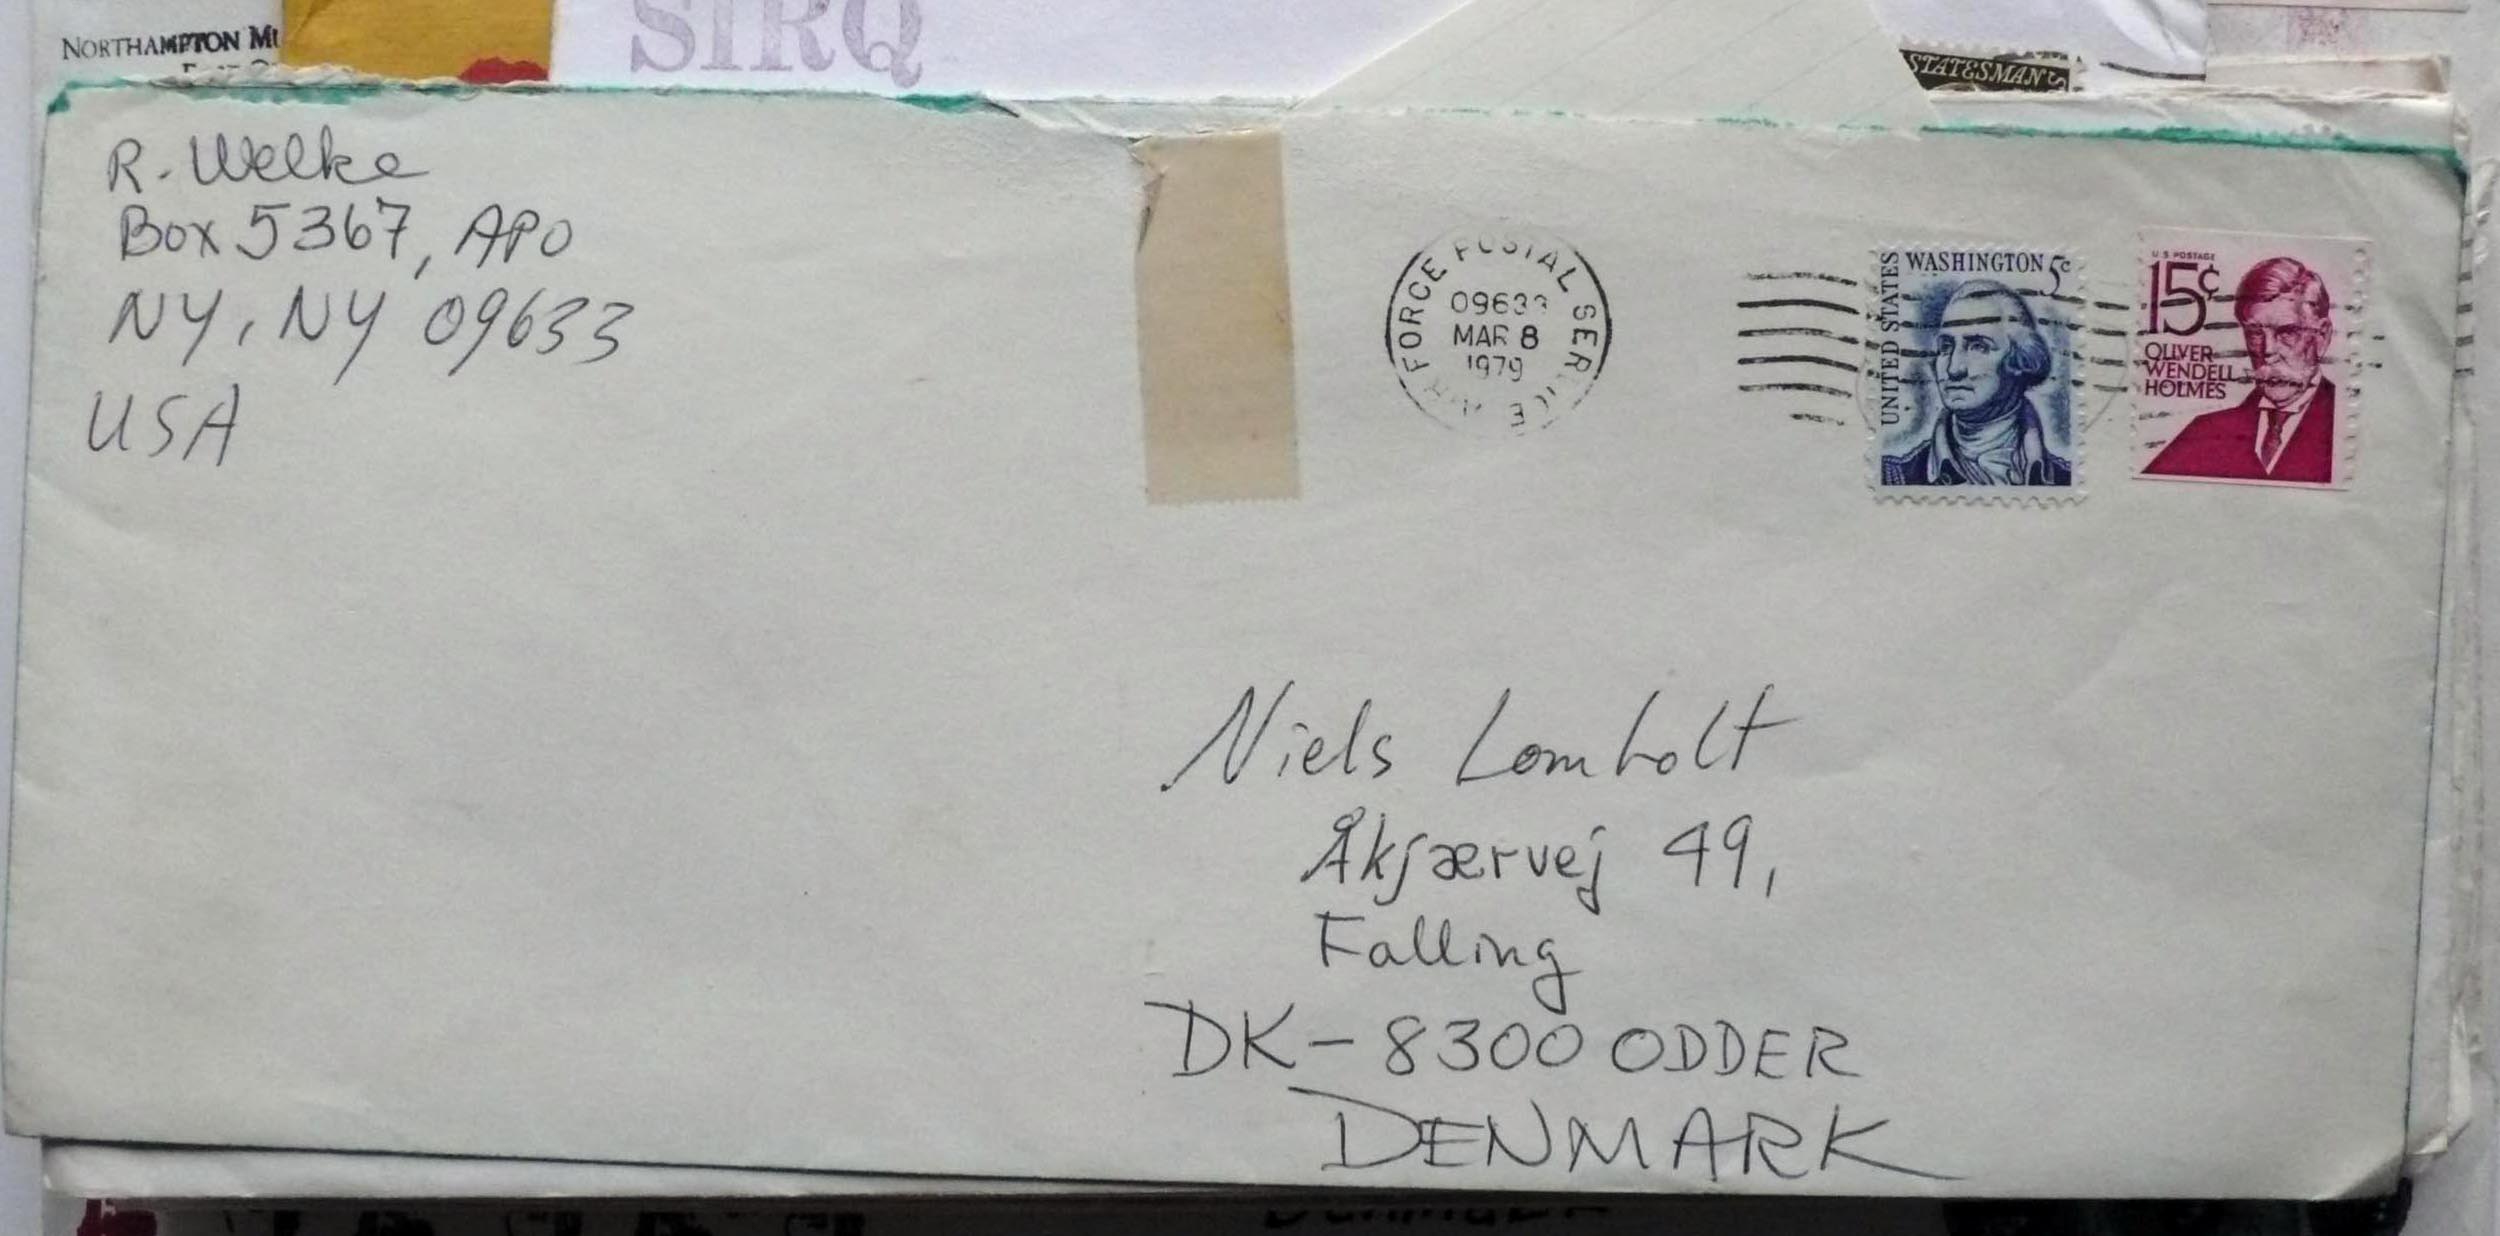 NORTHAMPTON
SIRQ
STATESMAN
R. Welke
Box 5367, APO
NY, NY 09633
USA
FORCE POSTAL SERVICE
09633
MAR 8
1979
UNITED STATES
WASHINGTON 5c
U.S. POSTAGE
15¢
OLIVER
WENDELL
HOLMES
Niels Lomholt
Åkjærvej 49,
Falling
DK-8300 ODDER
DENMARK